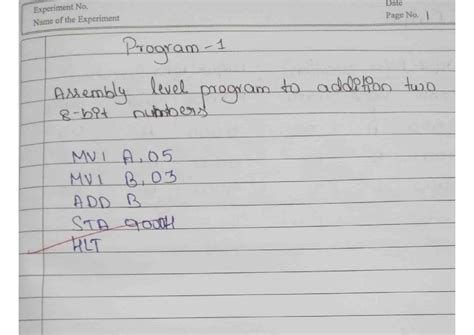 Experiment No.
Date
Name of the Experiment
Page No. 1
Program-1
Assembly level program to addition two
8-bit numbers
MVI A,05
MVI B,03
ADD B
STA 9000H
HLT